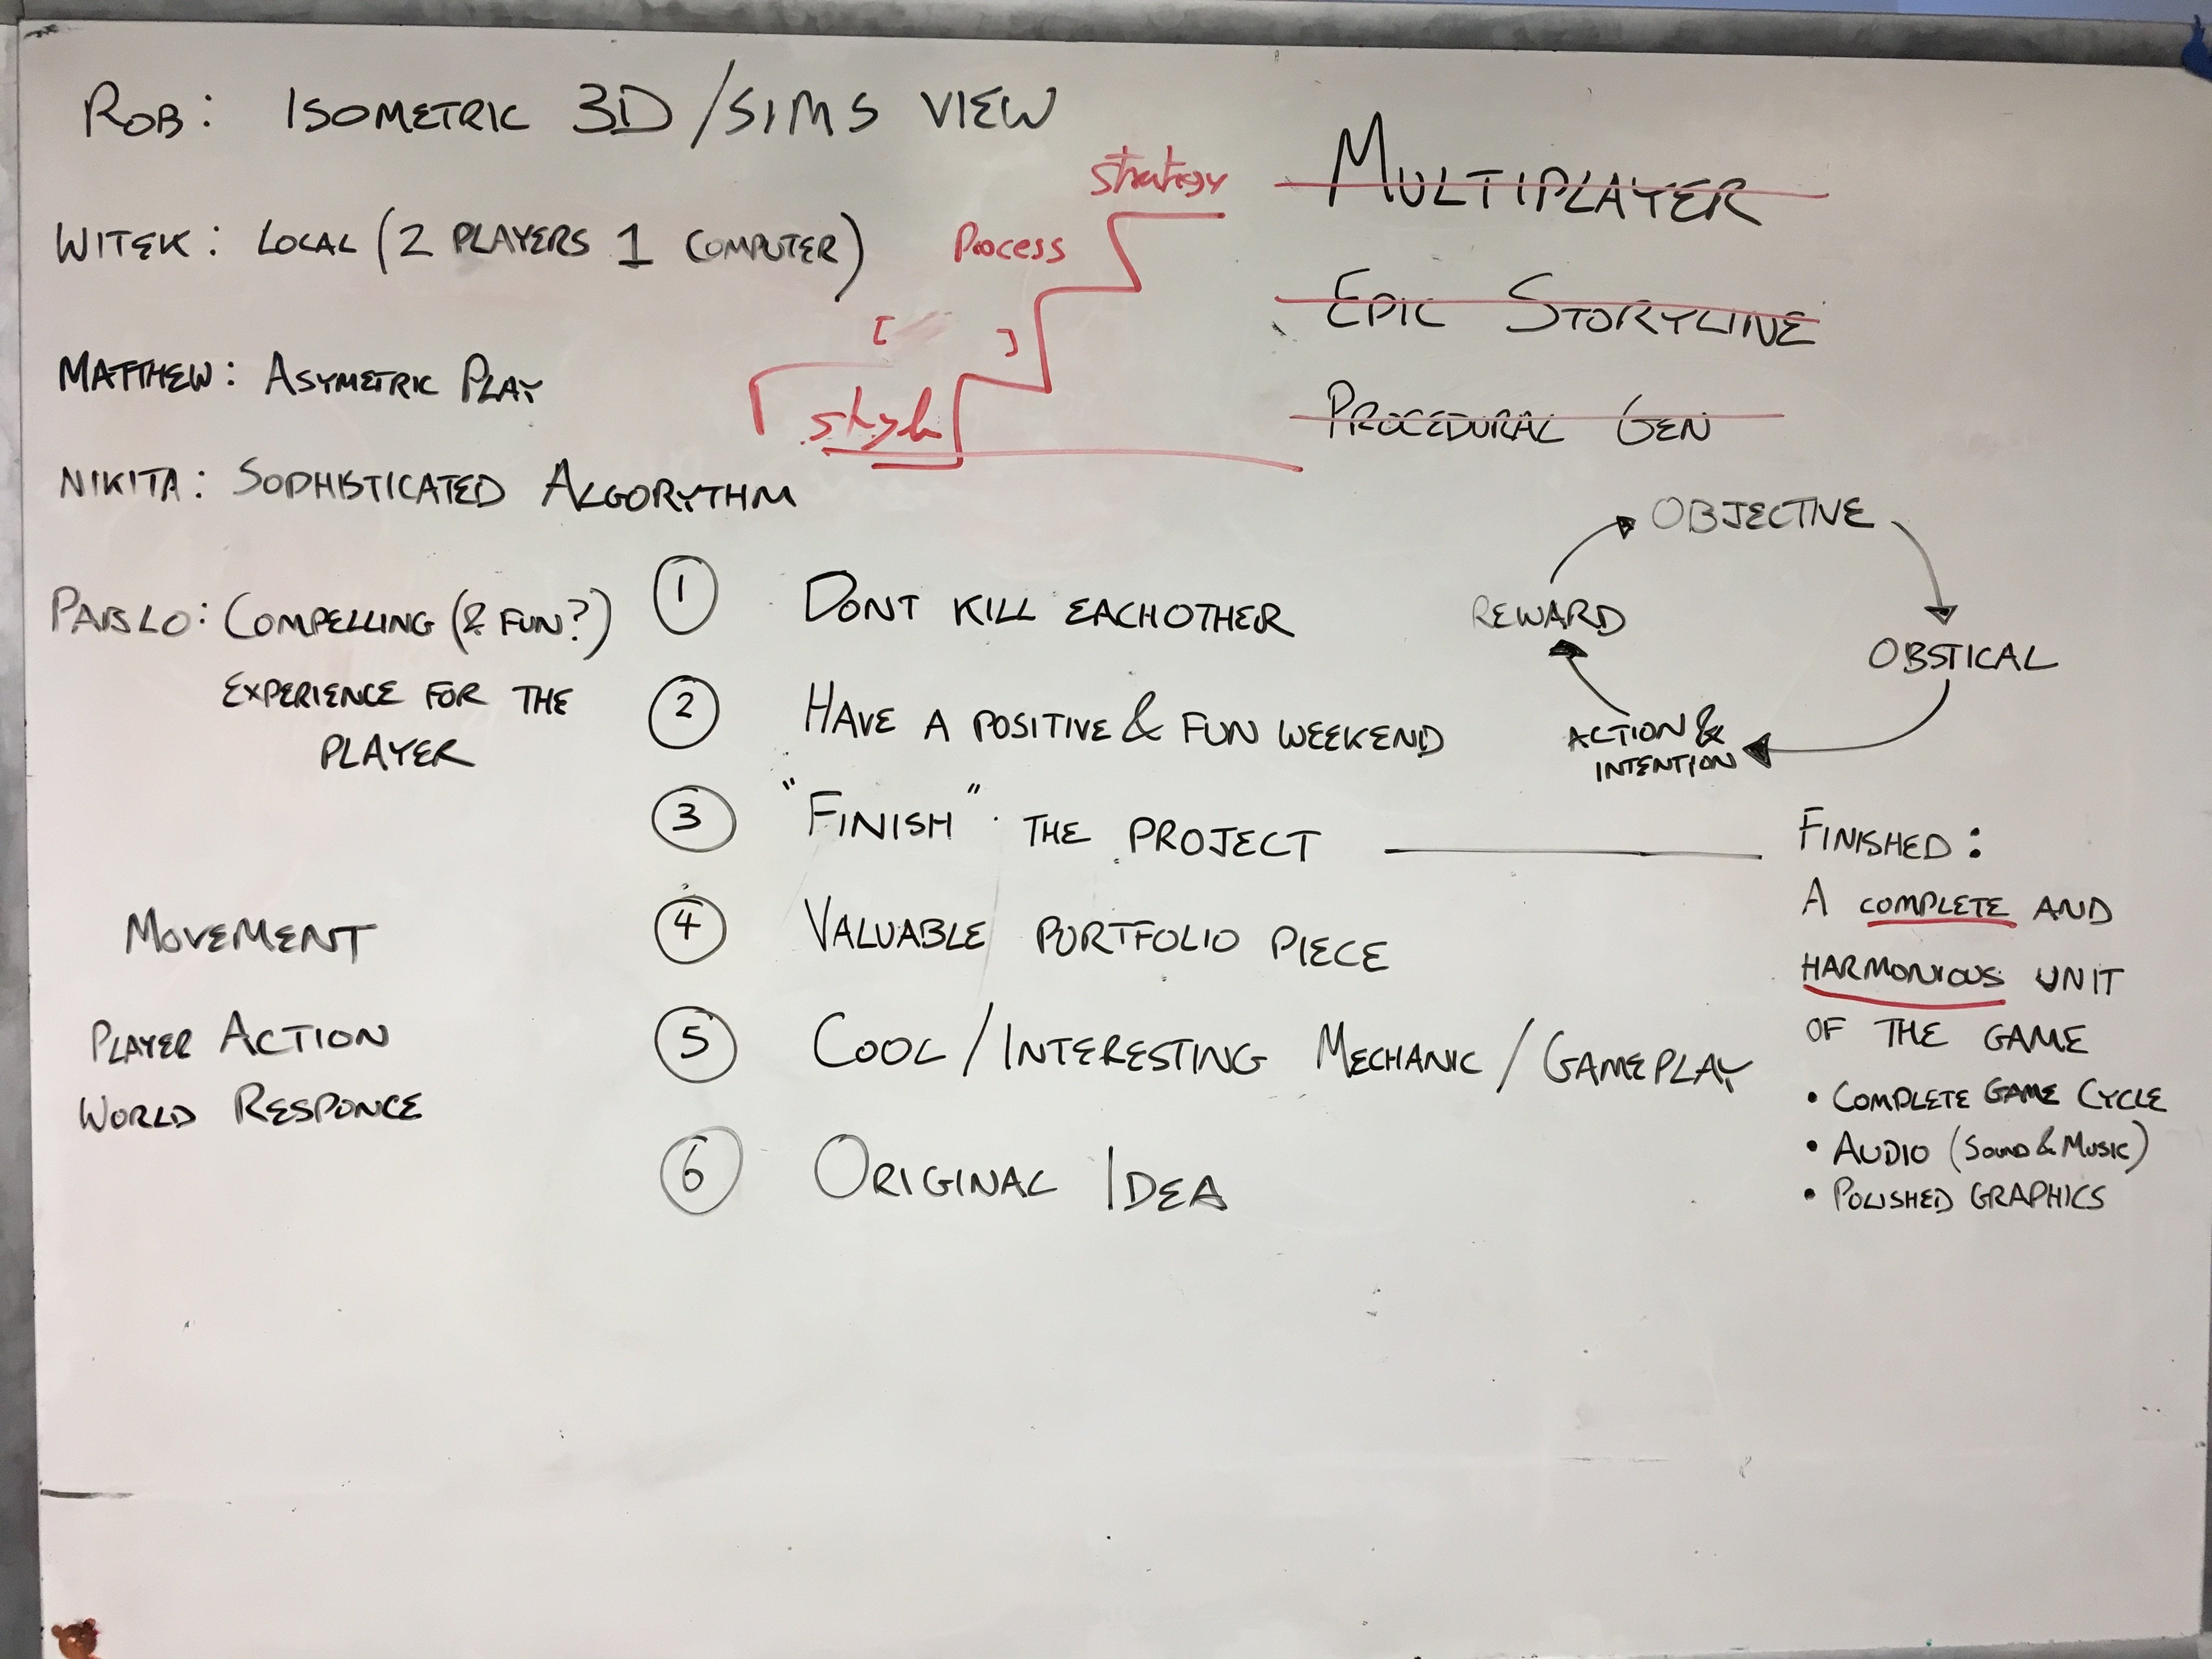 ROB: ISOMETRIC 3D/SIMS VIEW
WITEK: LOCAL (2 PLAYERS 1 COMPUTER)
MATTHEW: ASYMETRIC PLAY
NIKITA: SOPHISTICATED ALGORYTHM
PABLO: COMPELLING (& FUN?)
EXPERIENCE FOR THE
PLAYER
MOVEMENT
PLAYER ACTION
WORLD RESPONCE
Strategy
Process
[ ]
MULTIPLAYER
EPIC STORYLINE
PROCEDURAL GEN
OBJECTIVE
OBSTICAL
ACTION &
INTENTION
REWARD
1 DONT KILL EACHOTHER
2 HAVE A POSITIVE & FUN WEEKEND
3 "FINISH" THE PROJECT
4 VALUABLE PORTFOLIO PIECE
5 COOL/INTERESTING MECHANIC/GAMEPLAY
6 ORIGINAL IDEA
FINISHED:
A COMPLETE AND
HARMONIOUS UNIT
OF THE GAME
• COMPLETE GAME CYCLE
• AUDIO (SOUND & MUSIC)
• POLISHED GRAPHICS